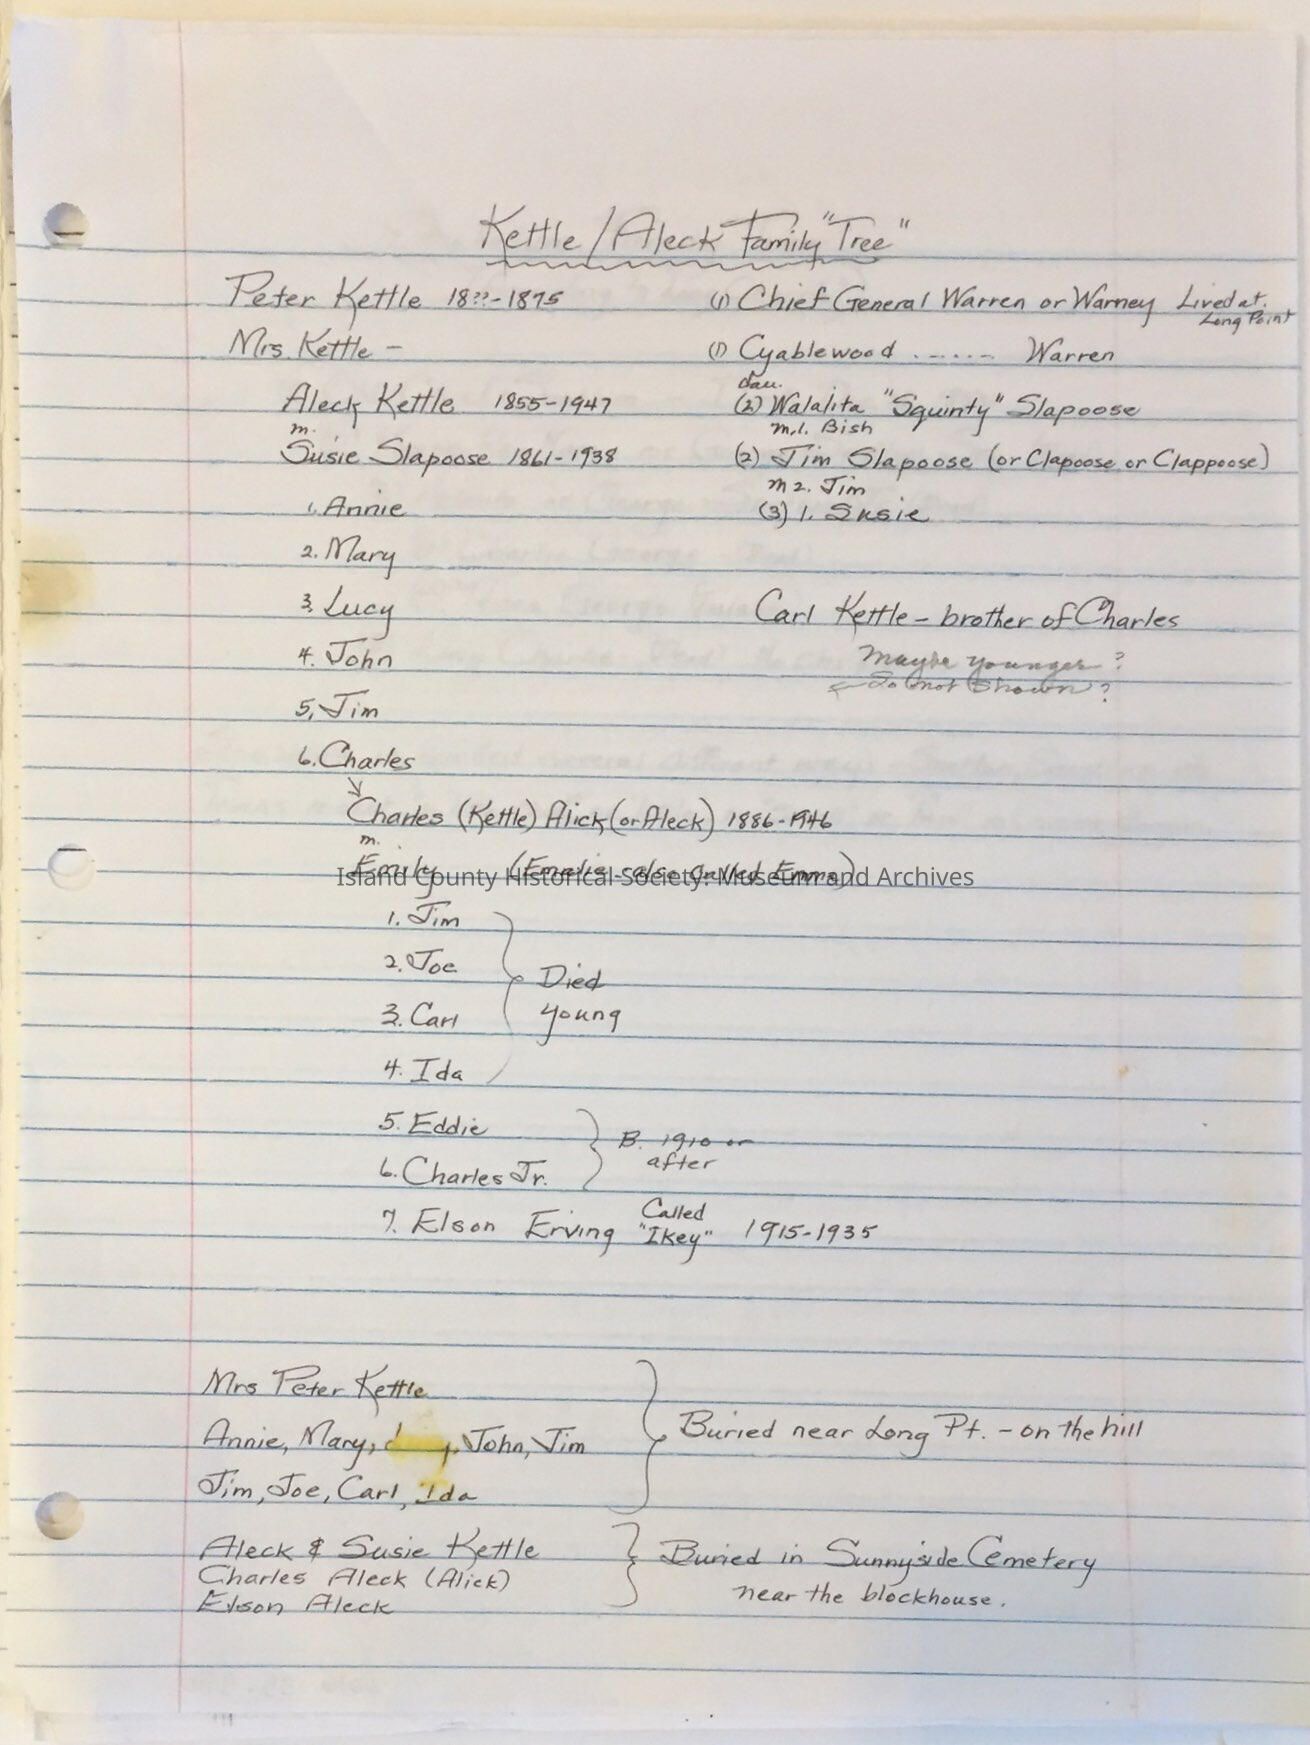 Kettle / Aleck Family "Tree"
Peter Kettle 18??-1895
Mrs. Kettle -
Aleck Kettle 1855-1947
m.
Susie Slapoose 1861-1938
1. Annie
2. Mary
3. Lucy
4. John
5. Jim
6. Charles
(1) Chief General Warren or Warney Lived at
Long Point
(1) Cyablewood ------ Warren
dau.
(2) Walalita "Squinty" Slapoose
m.1. Bish
(2) Jim Slapoose (or Clapoose or Clappoose)
m 2. Jim
(3) 1. Susie
Carl Kettle - brother of Charles
Maybe younger ?
So not shown ?
Charles (Kettle) Alick (or Aleck) 1886-1946
m.
Emily (Emelie - also called Emma)
Island County Historical Society: Museum and Archives
1. Jim
2. Joe
3. Carl
4. Ida
Died
young
5. Eddie
6. Charles Jr.
B. 1910 or
after
7. Elson Erving Called "Ikey" 1915-1935
Mrs Peter Kettle
Annie, Mary, John, Jim
Jim, Joe, Carl, Ida
Buried near Long Pt. - on the hill
Aleck & Susie Kettle
Charles Aleck (Alick)
Elson Aleck
Buried in Sunnyside Cemetery
near the blockhouse.